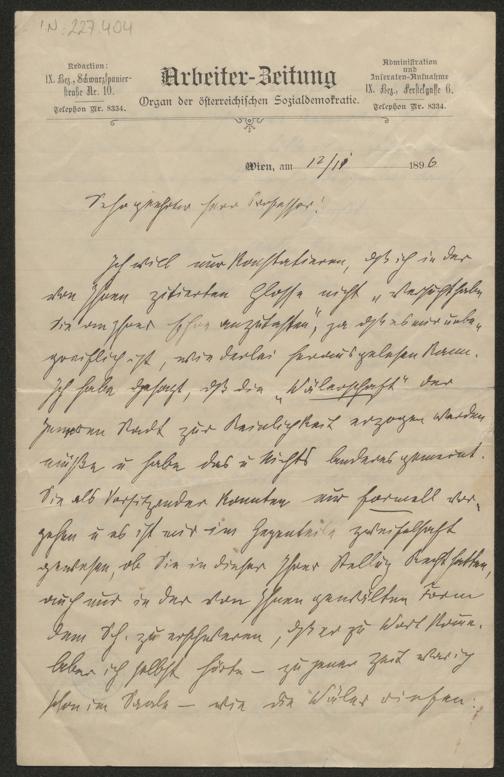 IN: 227.404
Redaction:
IX. Bez., Schwarzspanier-
straße Nr. 10.
Telephon Nr. 8334.
Arbeiter-Zeitung
Organ der österreichischen Sozialdemokratie.
Administration
und
Inseraten-Aufnahme
IX. Bez., Ferstelgasse 6.
Telephon Nr. 8334.
Wien, am 12/11 1896
Sehr geehrter Herr Professor!
Ich will nur konstatieren, dß ich in der
von Ihnen zitierten Glosse nicht „versucht habe
Sie an Ihrer Ehre anzutasten", ja dß es mir unbe-
greiflich ist, wie derlei herausgelesen kann.
Ich habe gesagt, dß die „Wälerschaft" der
Inneren Stadt zur Reinlichkeit erzogen werden
müße u habe das u Nichts Anderes gemeint.
Sie als Vorsitzender konnten nur formell vor-
gehen u es ist mir im Gegenteile zweifelhaft
gewesen, ob Sie in dieser Ihrer Stellug Recht hatten,
auch nur in der von Ihnen gewälten Form
dem Sch. zu erschweren, dß er zu Wort komme.
Aber ich selbst hörte – zu jener Zeit war ich
schon im Saale – wie die Wäler riefen: